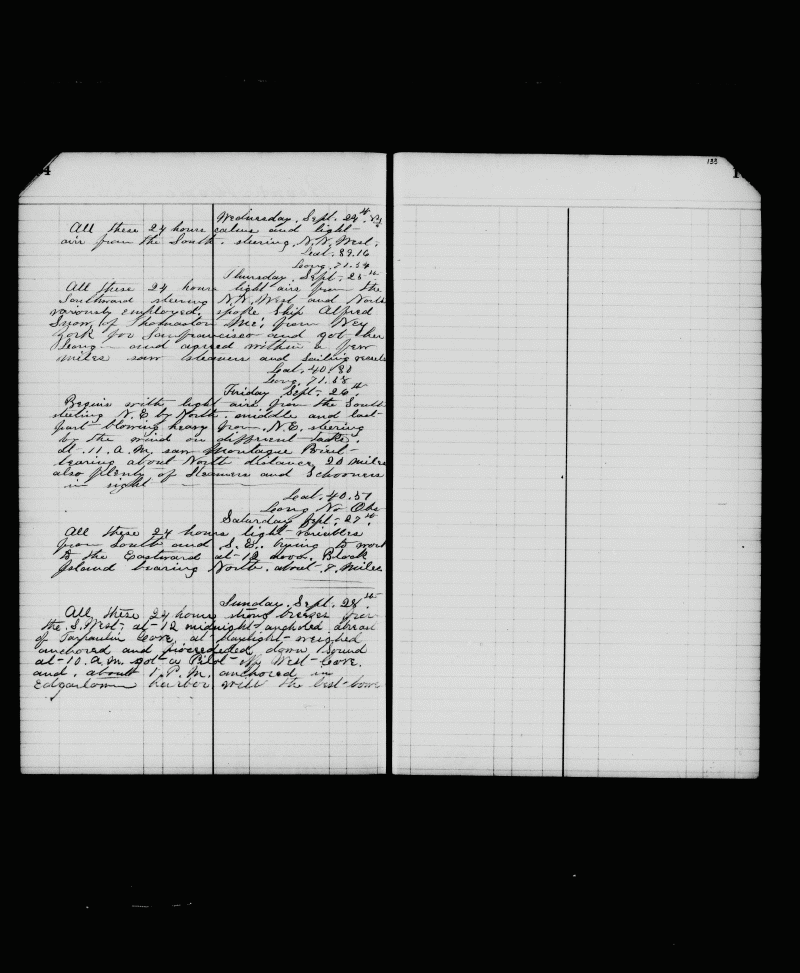 4
Wednesday. Sept. 24th
All these 24 hours calms and light
airs from the South. steering N.N.West.
Lat. 39.16
Long. 71.54
Thursday. Sept. 25th
All these 24 hours light airs from the
Southward steering N.N.West and North
variously employed. spoke Ship Alfred
Snow, of Thomaston Me; from New
York for Sanfrancisco and got her
Long and agreed within a few
miles saw steamers and sailing vessels
Lat. 40.30
Long. 71.58
Friday Sept. 26th
Begins with light airs from the South
steering N.E by North. middle and last
part blowing heavy from N.E. steering
by the wind on different tacks.
at 11. A.M. saw Montague Point
bearing about North distance 20 miles
also plenty of Steamers and Schooners
in sight
Lat. 40.57
Long No Obs
Saturday Sept. 27th.
All these 24 hours light variables
from South and S.E. trying to work
to the Eastward at 12 noon. Block
Island bearing North. about 8. miles.
Sunday. Sept. 28th.
All these 24 hours strong breezes from
the S.West; at 12 midnight anchored abreast
of Tarpaulin Cove, at daylight weighed
anchored and proceeded down Sound
at 10. A.M. got a Pilot off West Cove.
and, about 1. P.M. anchored in
Edgartown harbor, with the best bower
133
1